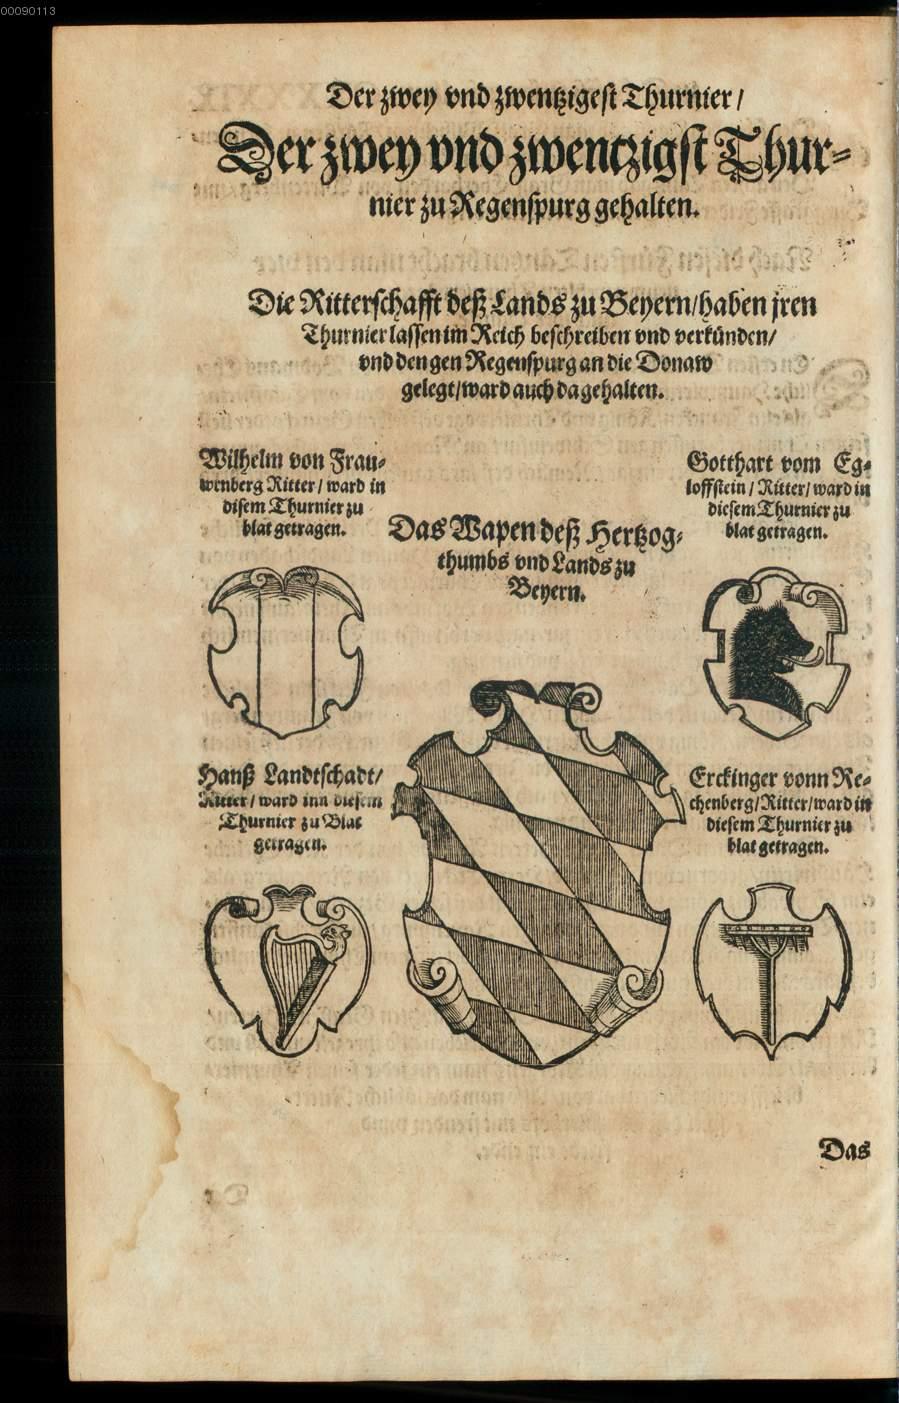 00090113
Der zwey vnd zwentzigest Thurnier/
Der zwey vnd zwentzigst Thur-
nier zu Regenspurg gehalten.
Die Ritterschafft deß Lands zu Beyern/haben jren
Thurnier lassen im Reich beschreiben vnd verkünden/
vnd den gen Regenspurg an die Donaw
gelegt/ward auch da gehalten.
Wilhelm von Frau-
wenberg Ritter/ ward in
disem Thurnier zu
blat getragen.
Gotthart vom Eg-
loffstein/ Ritter/ ward in
diesem Thurnier zu
blat getragen.
Das Wapen deß Hertzog-
thumbs vnd Lands zu
Beyern.
Hanß Landtschadt/
Ritter/ ward inn diesem
Thurnier zu Blat
getragen.
Erckinger vonn Re-
chenberg/Ritter/ward in
diesem Thurnier zu
blat getragen.
Das